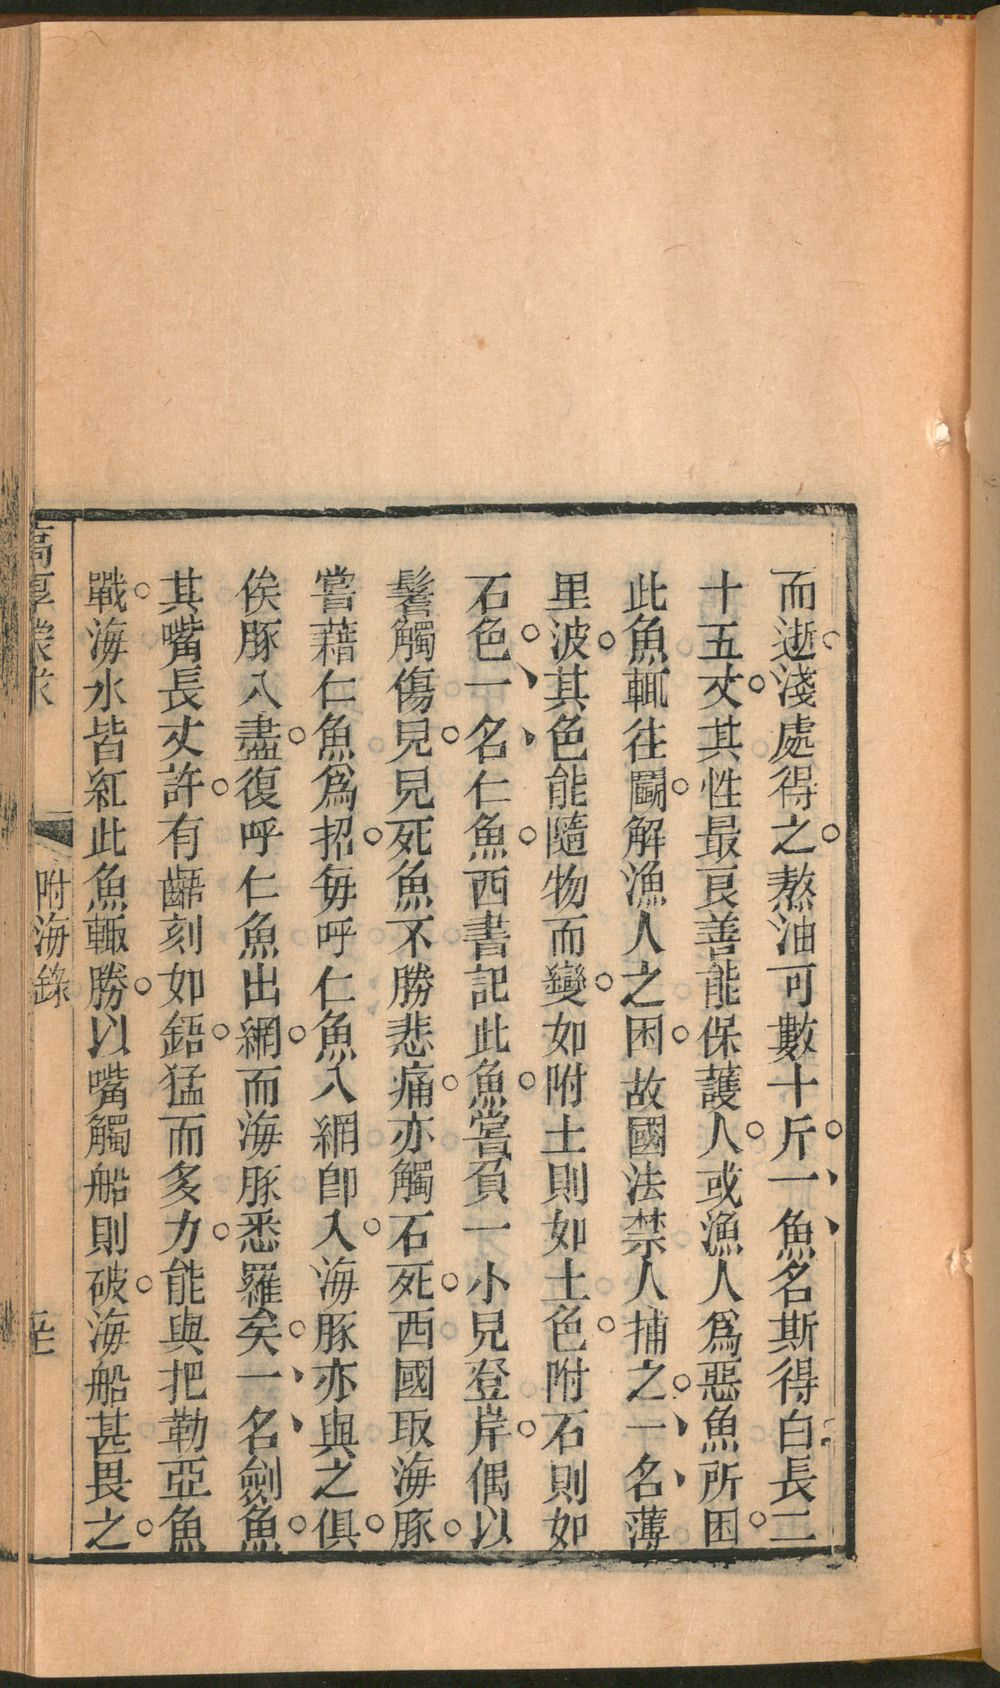 而逝淺處得之熬油可數十斤一魚名斯得白長二
十五丈其性最良善能保護人或漁人爲惡魚所困
此魚輒往鬭解漁人之困故國法禁人捕之一名薄
里波其色能隨物而變如附土則如土色附石則如
石色一名仁魚西書記此魚嘗負一小兒登岸偶以
鬐觸傷兒兒死魚不勝悲痛亦觸石死西國取海豚
嘗藉仁魚爲招每呼仁魚入網卽入海豚亦與之俱
俟豚入盡復呼仁魚出網而海豚悉羅矣一名劍魚
其嘴長丈許有齬刻如鋙猛而多力能與把勒亞魚
戰海水皆紅此魚輒勝以嘴觸船則破海船甚畏之
高厚蒙求
附海錄